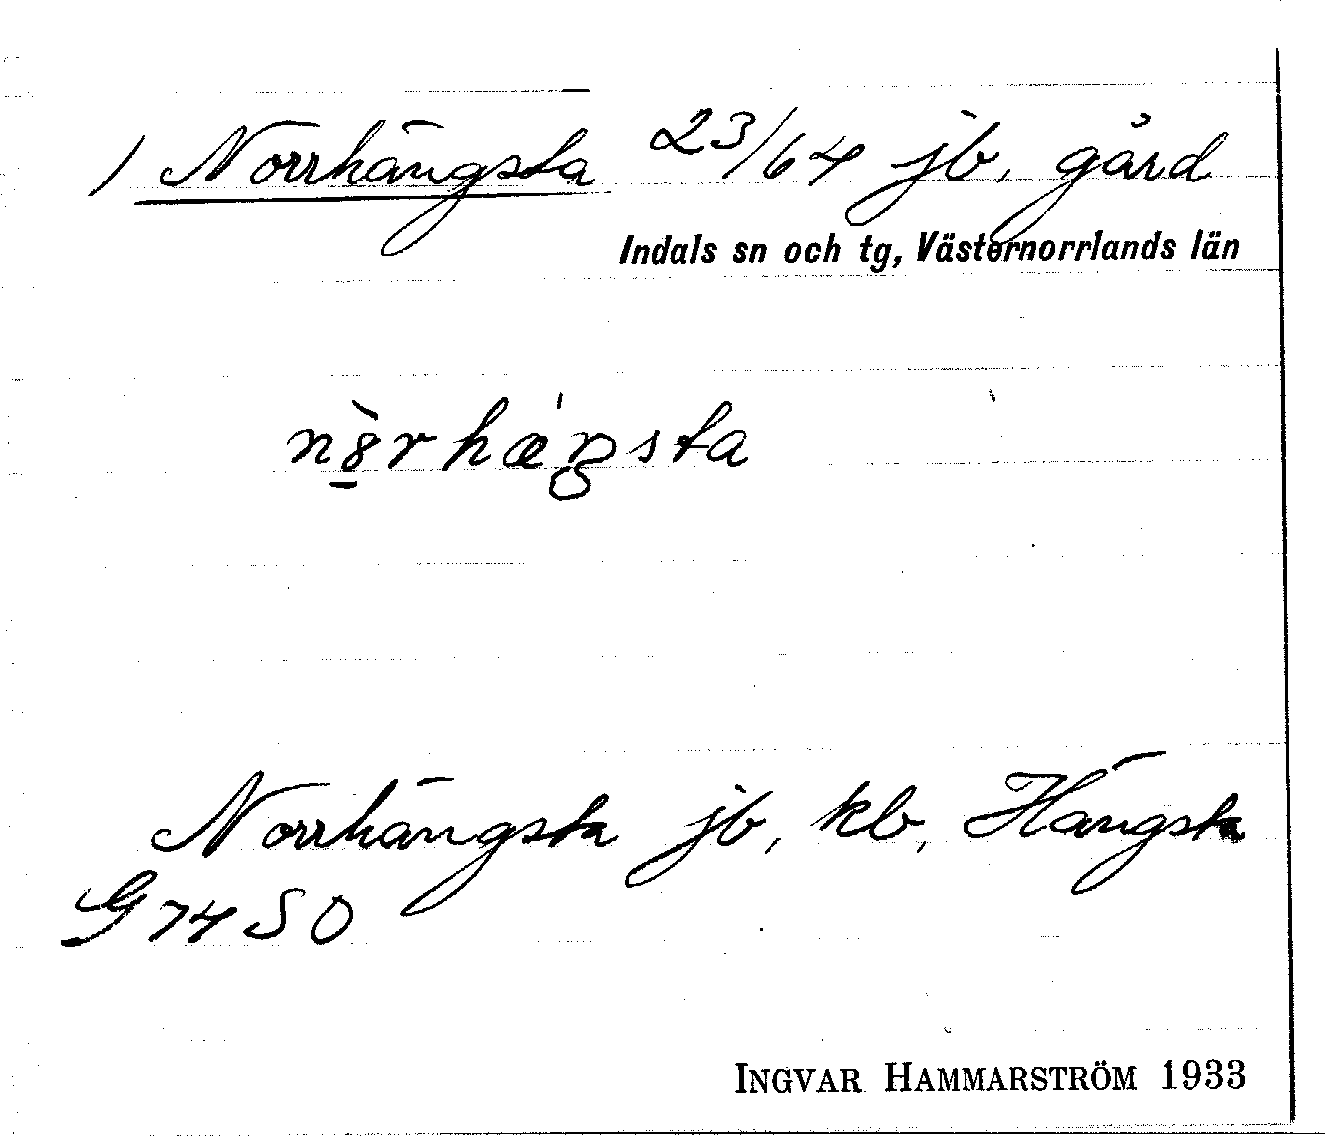 1 Norrhängsta 23/64 jb, gård
Indals sn och tg, Västernorrlands län
Norrhängsta jb, kb, Hängsta
G 74 S O
INGVAR HAMMARSTRÖM 1933